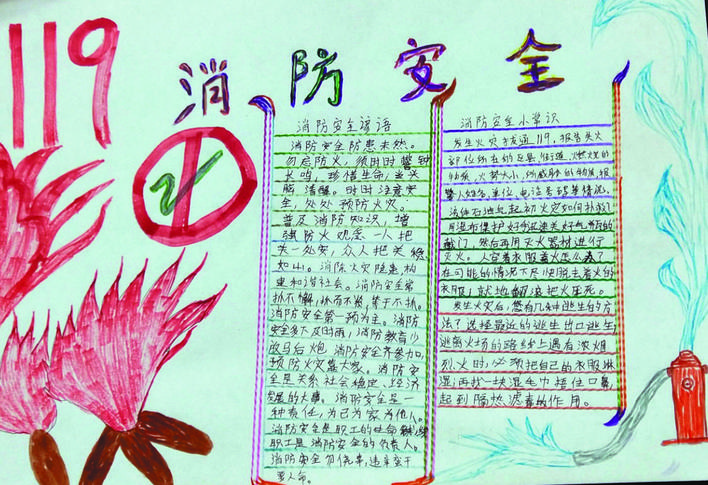 119
消防安全
消防安全谚语
消防安全防患未然。
勿忘防火,须时时警钟
长鸣,珍惜生命,当头
脑清醒。时时注意安
全,处处预防火灾。
普及消防知识,增
强防火观念 一人把
关一处安,众人把关稳
如山。消除火灾隐患,构
建和谐社会。消防安全常
抓不懈,抓而不紧,等于不抓。
消防安全第一预为主。消防
安全多下及时雨,消防教育少
放马后炮 消防安全齐参加,
预防火灾靠大家。消防安
全是关系社会稳定、经济
发展的大事。消防安全是一
种责任,为己为家为他人。
消防安全是职工的生命
职工是消防安全的负责人。
消防安全勿侥幸,违章蛮干
要人命。
消防安全小常识
发生火灾拨通119,报告失火
部位所在的区县、街道、燃烧的
物质,火势大小,
警人姓名、单位、电话号码等情况,
起初火灾如何扑救?
用湿布保护好手迅速关好气瓶的
阀门,然后再用灭火器材进行
灭火。人穿着衣服着火怎么办?
在可能的情况下尽快脱去着火的
衣服,就地翻滚把火压死。
发生火灾后,您有几种逃生的方
法?选择最近的逃生出口逃生,
逃离火场的路线上遇有浓烟
烈火时,必须把自己的衣服淋
湿;再找一块湿毛巾捂住口鼻,
起到隔热滤毒的作用。